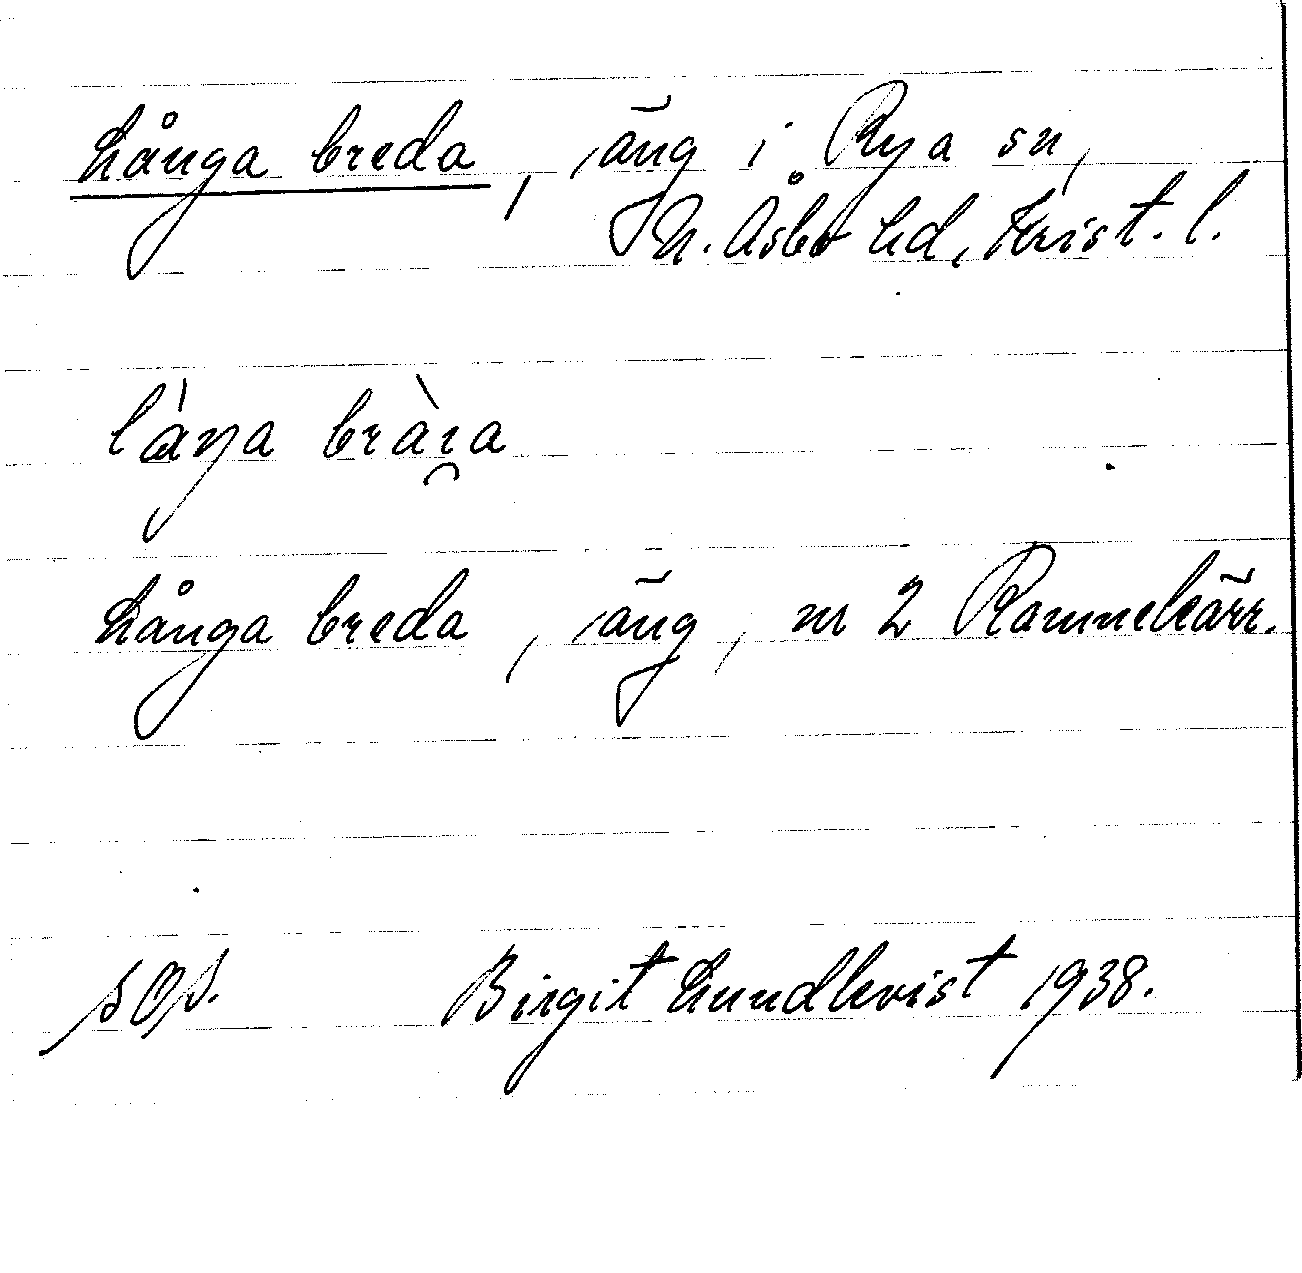 Långa breda, äng i Rya sn,
N. Åsbo hd, Krist. l.
làŋa brà̯ɪa
Långa breda, äng, nr 2 Rammekärr.
SOS. Birgit Lundkvist 1938.